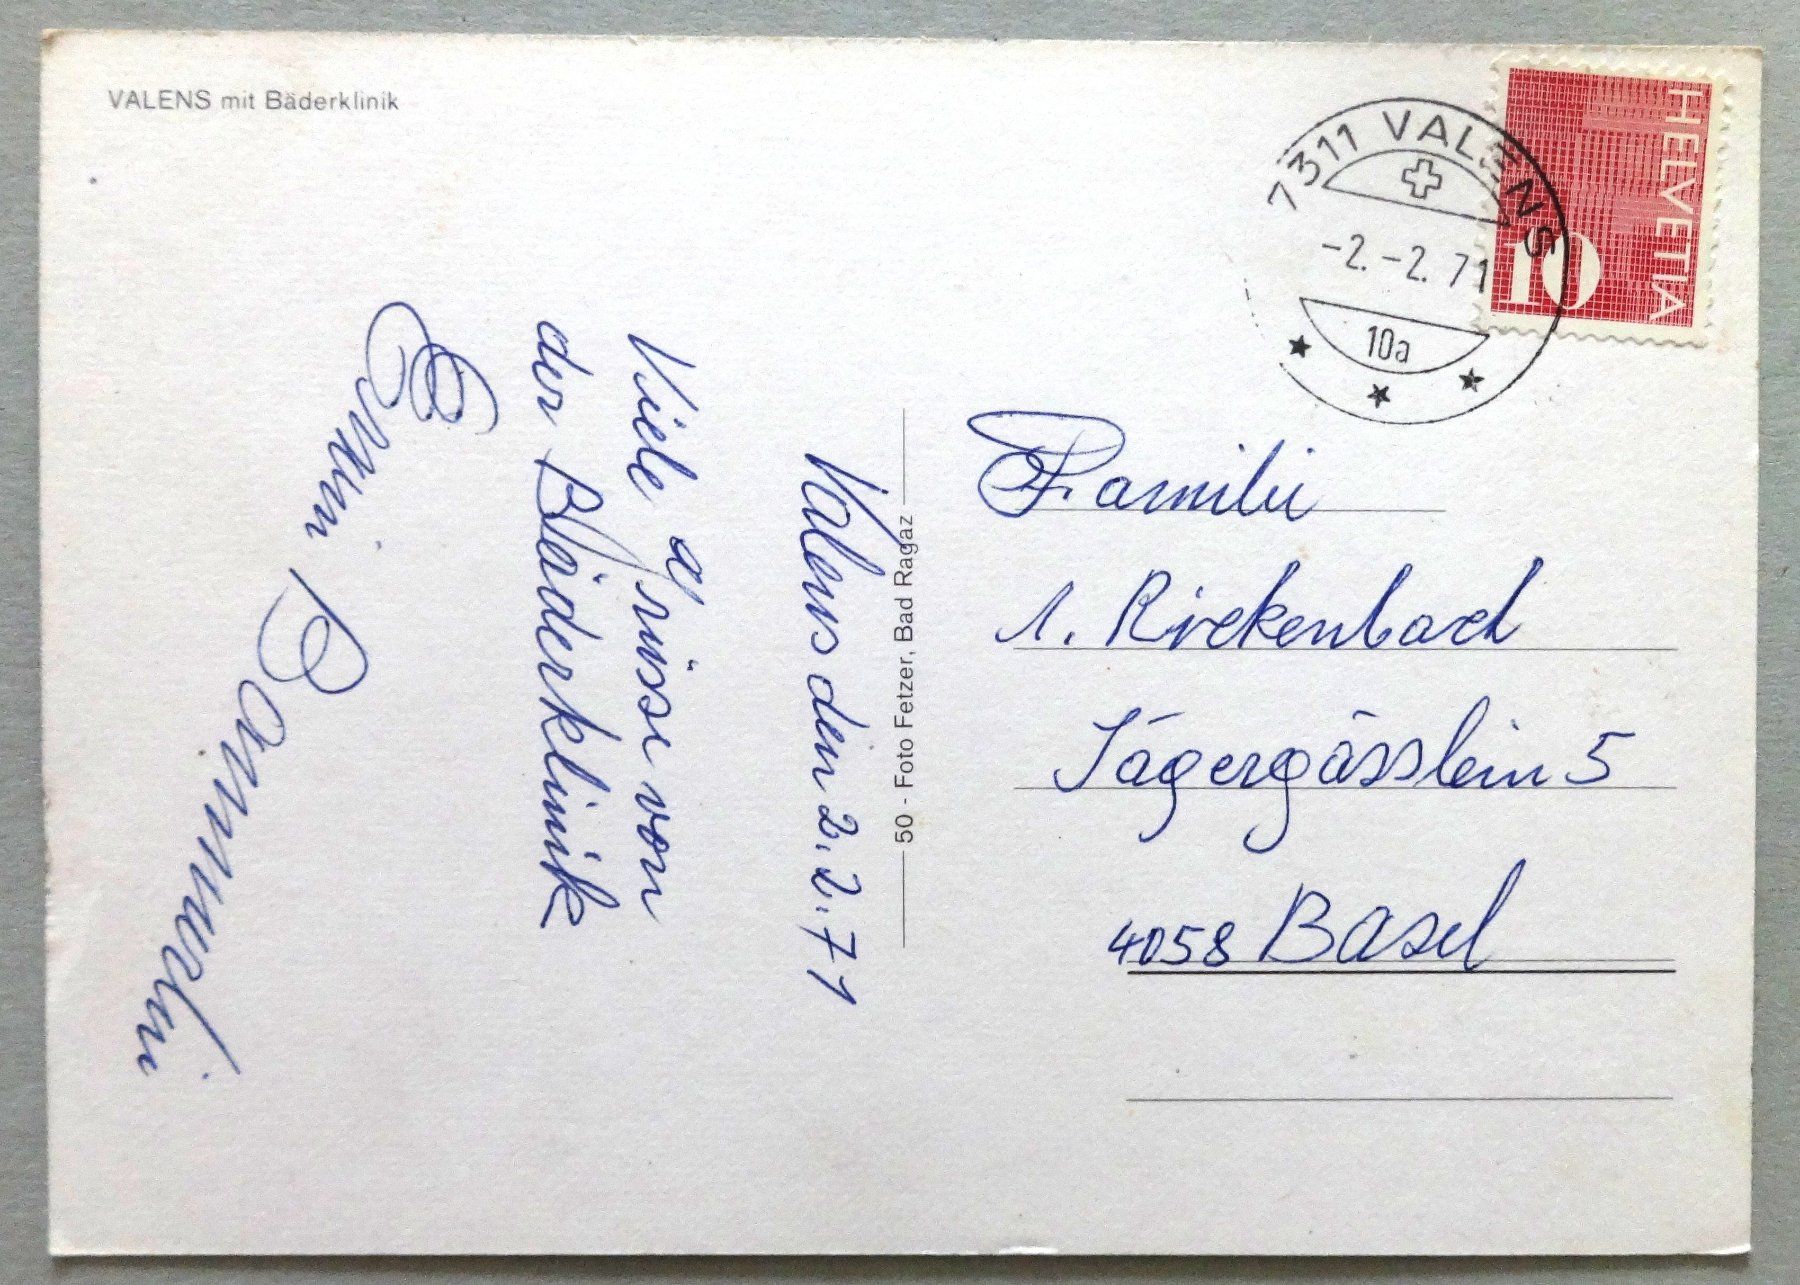 VALENS mit Bäderklinik
7311 VALENS
-2.-2.71
10a
HELVETIA
10
Valens den 2.2.71
Viele Grüsse von
der Bäderklinik
50 - Foto Fetzer, Bad Ragaz
Familie
1. Rickenbach
Jägergässlein 5
4058 Basel